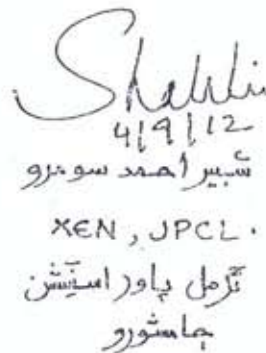 4/9/12
شبير احمد سومرو
XEN, JPCL.
ٿرمل پاور اسٽيشن
ڄامشورو